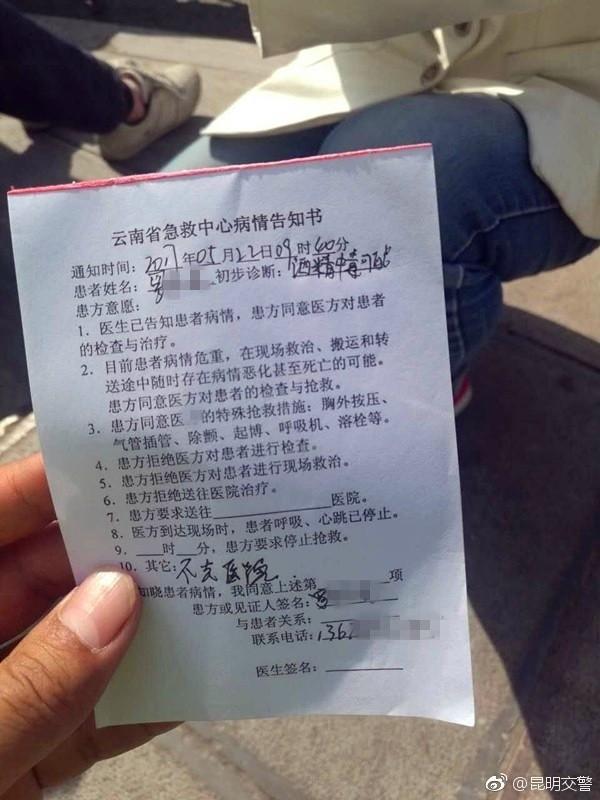 云南省急救中心病情告知书
通知时间: 2017年05月22日09时40分
患者姓名: 罗 初步诊断: 酒精中毒可能
患方意愿:
1. 医生已告知患者病情，患方同意医方对患者
的检查与治疗。
2. 目前患者病情危重，在现场救治、搬运和转
送途中随时存在病情恶化甚至死亡的可能。
患方同意医方对患者的检查与抢救。
3. 患方同意医 的特殊抢救措施: 胸外按压、
气管插管、除颤、起博、呼吸机、溶栓等。
4. 患方拒绝医方对患者进行检查。
5. 患方拒绝医方对患者进行现场救治。
6. 患方拒绝送往医院治疗。
7. 患方要求送往____________医院。
8. 医方到达现场时，患者呼吸、心跳已停止。
9. ___时___分，患方要求停止抢救。
10. 其它: 不去医院
知晓患者病情，我同意上述第 项
患方或见证人签名: 罗
与患者关系:
联系电话: 136
医生签名: ________
@昆明交警